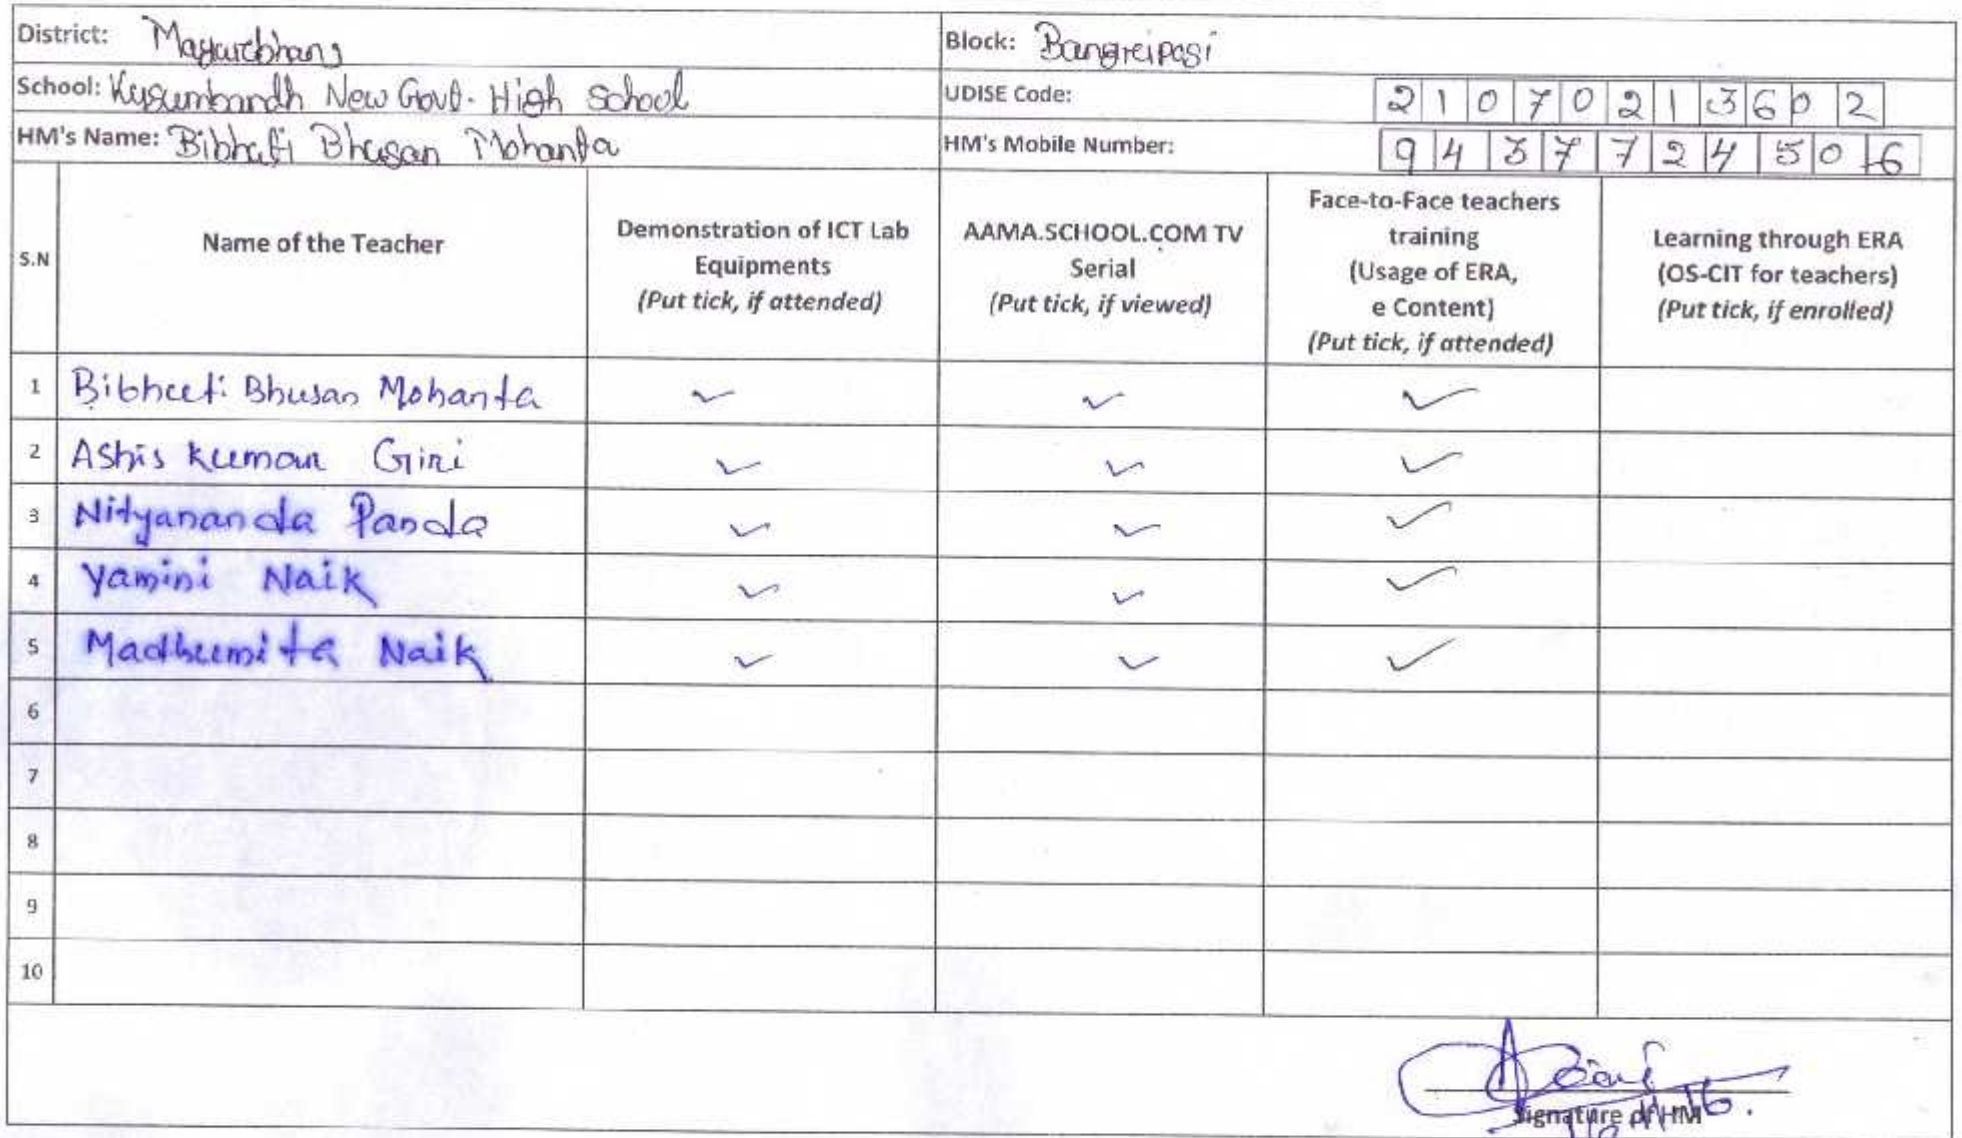 District: Mayurbhanj Block: Bangreiposi
School: Kusumbandh New Govt. High School UDISE Code: 21070213602
HM's Name: Bibhuti Bhusan Mohanta HM's Mobile Number: 9437724506
S.N Name of the Teacher Demonstration of ICT Lab Equipments (Put tick, if attended) AAMA.SCHOOL.COM TV Serial (Put tick, if viewed) Face-to-Face teachers training (Usage of ERA, e Content) (Put tick, if attended) Learning through ERA (OS-CIT for teachers) (Put tick, if enrolled)
1 Bibhuti Bhusan Mohanta ✓ ✓ ✓
2 Ashis Kumar Giri ✓ ✓ ✓
3 Nityananda Panda ✓ ✓ ✓
4 Yamini Naik ✓ ✓ ✓
5 Madhumita Naik ✓ ✓ ✓
6
7
8
9
10
Signature of HM